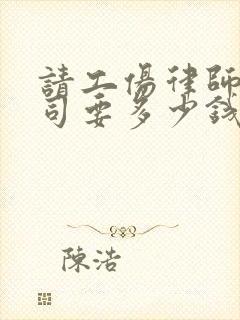 請工傷律師
司要多少錢
陳浩